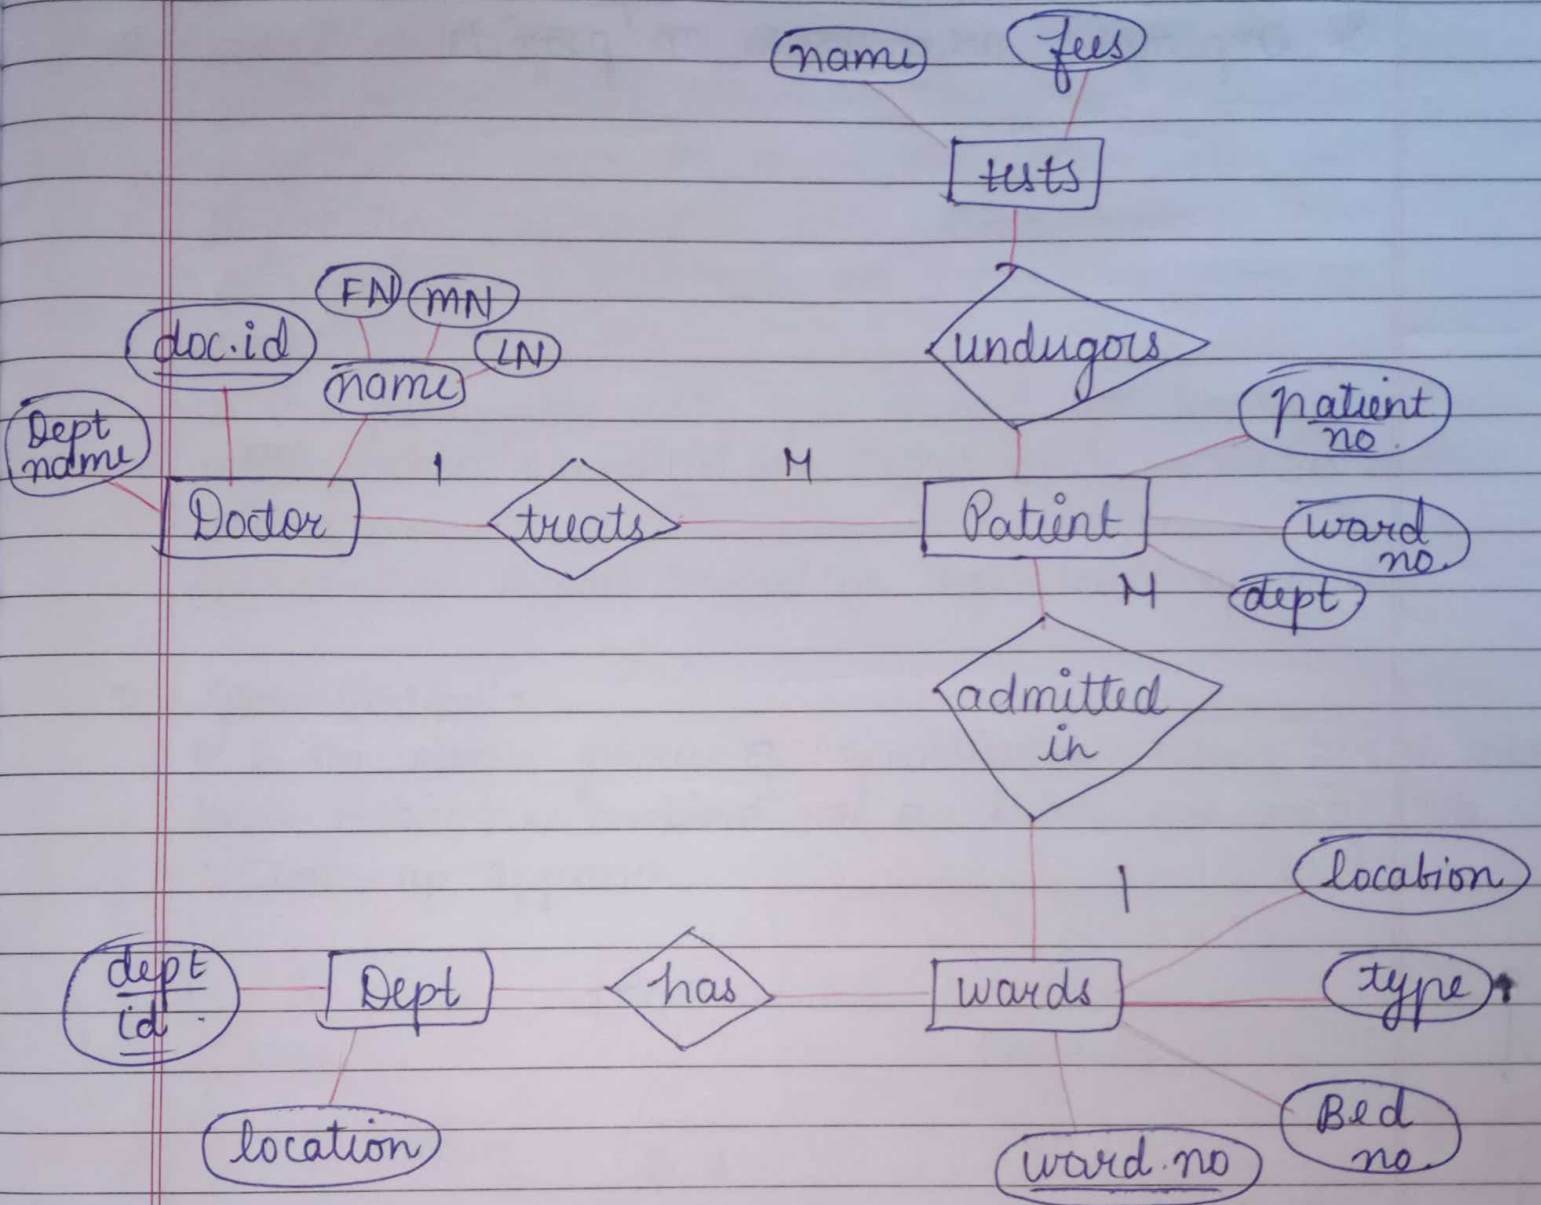 name
fees
tests
FN
MN
LN
doc.id
name
undergoes
Dept
name
patient
no.
1
M
Doctor
treats
Patient
ward
no.
M
dept
admitted
in
1
location
dept
id
Dept
has
wards
type
location
ward.no
Bed
no.